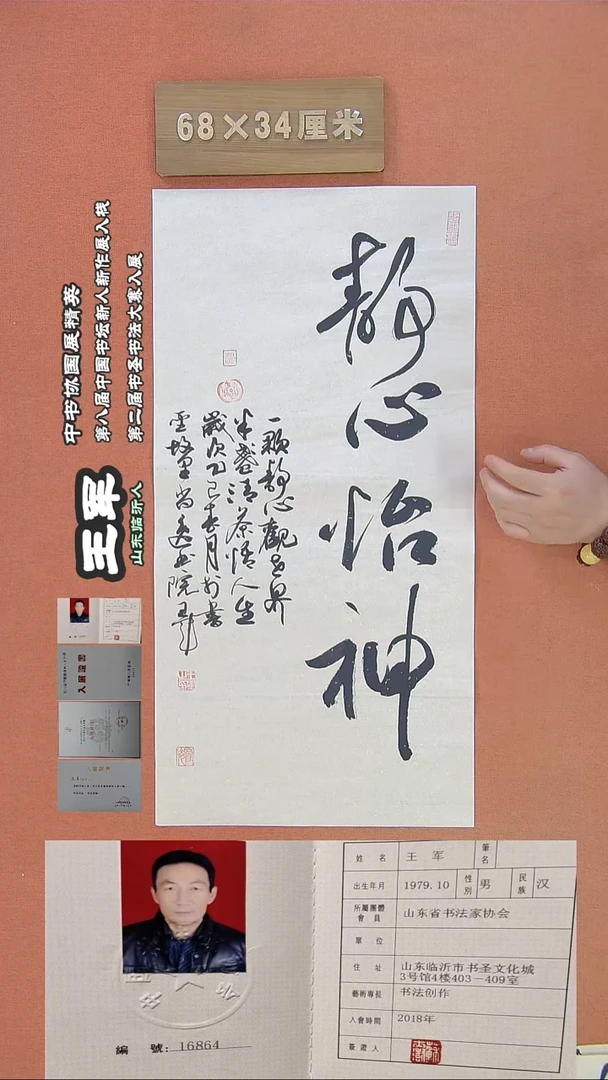 68×34厘米
静心怡神
一颗静心观世界
半盏清茶悟人生
岁次乙巳春月于书
圣故里尚逸书院王军
中书协国展精英
第八届中国书坛新人新作展入展
第二届书圣书法大赛入展
王军
山东临沂人
入展证书
姓名 王军 笔名
出生年月 1979.10 性别 男 民族 汉
所屬團體會員 山东省书法家协会
單位
住址 山东临沂市书圣文化城
3号馆4楼403—409室
藝術專長 书法创作
入會時間 2018年
簽證人
編號: 16864